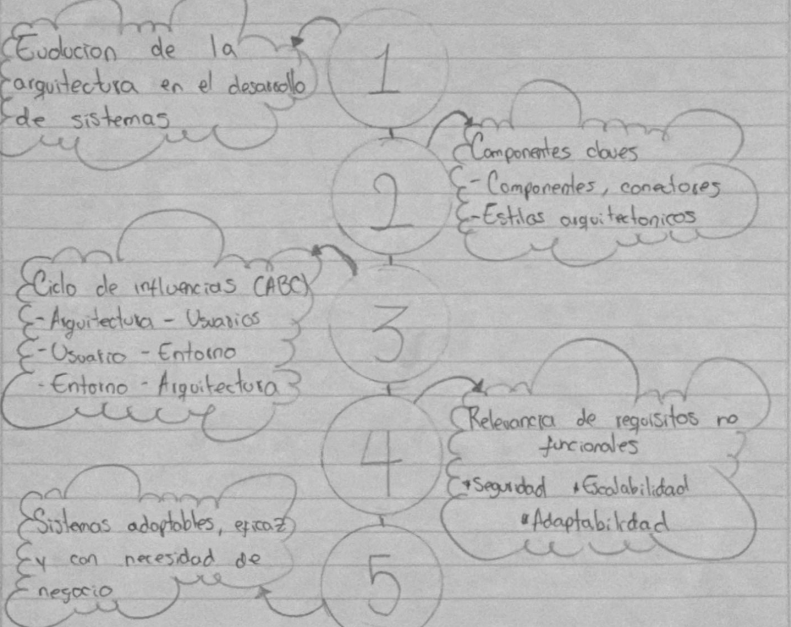 1
Evolucion de la
arquitectura en el desarrollo
de sistemas
2
Componentes claves
- Componentes, conectores
- Estilos arquitectonicos
3
Ciclo de influencias (ABC)
- Arquitectura - Usuarios
- Usuario - Entorno
- Entorno - Arquitectura
4
Relevancia de requisitos no
funcionales
* Seguridad * Escalabilidad
* Adaptabilidad
5
Sistemas adaptables, eficaz
y con necesidad de
negocio